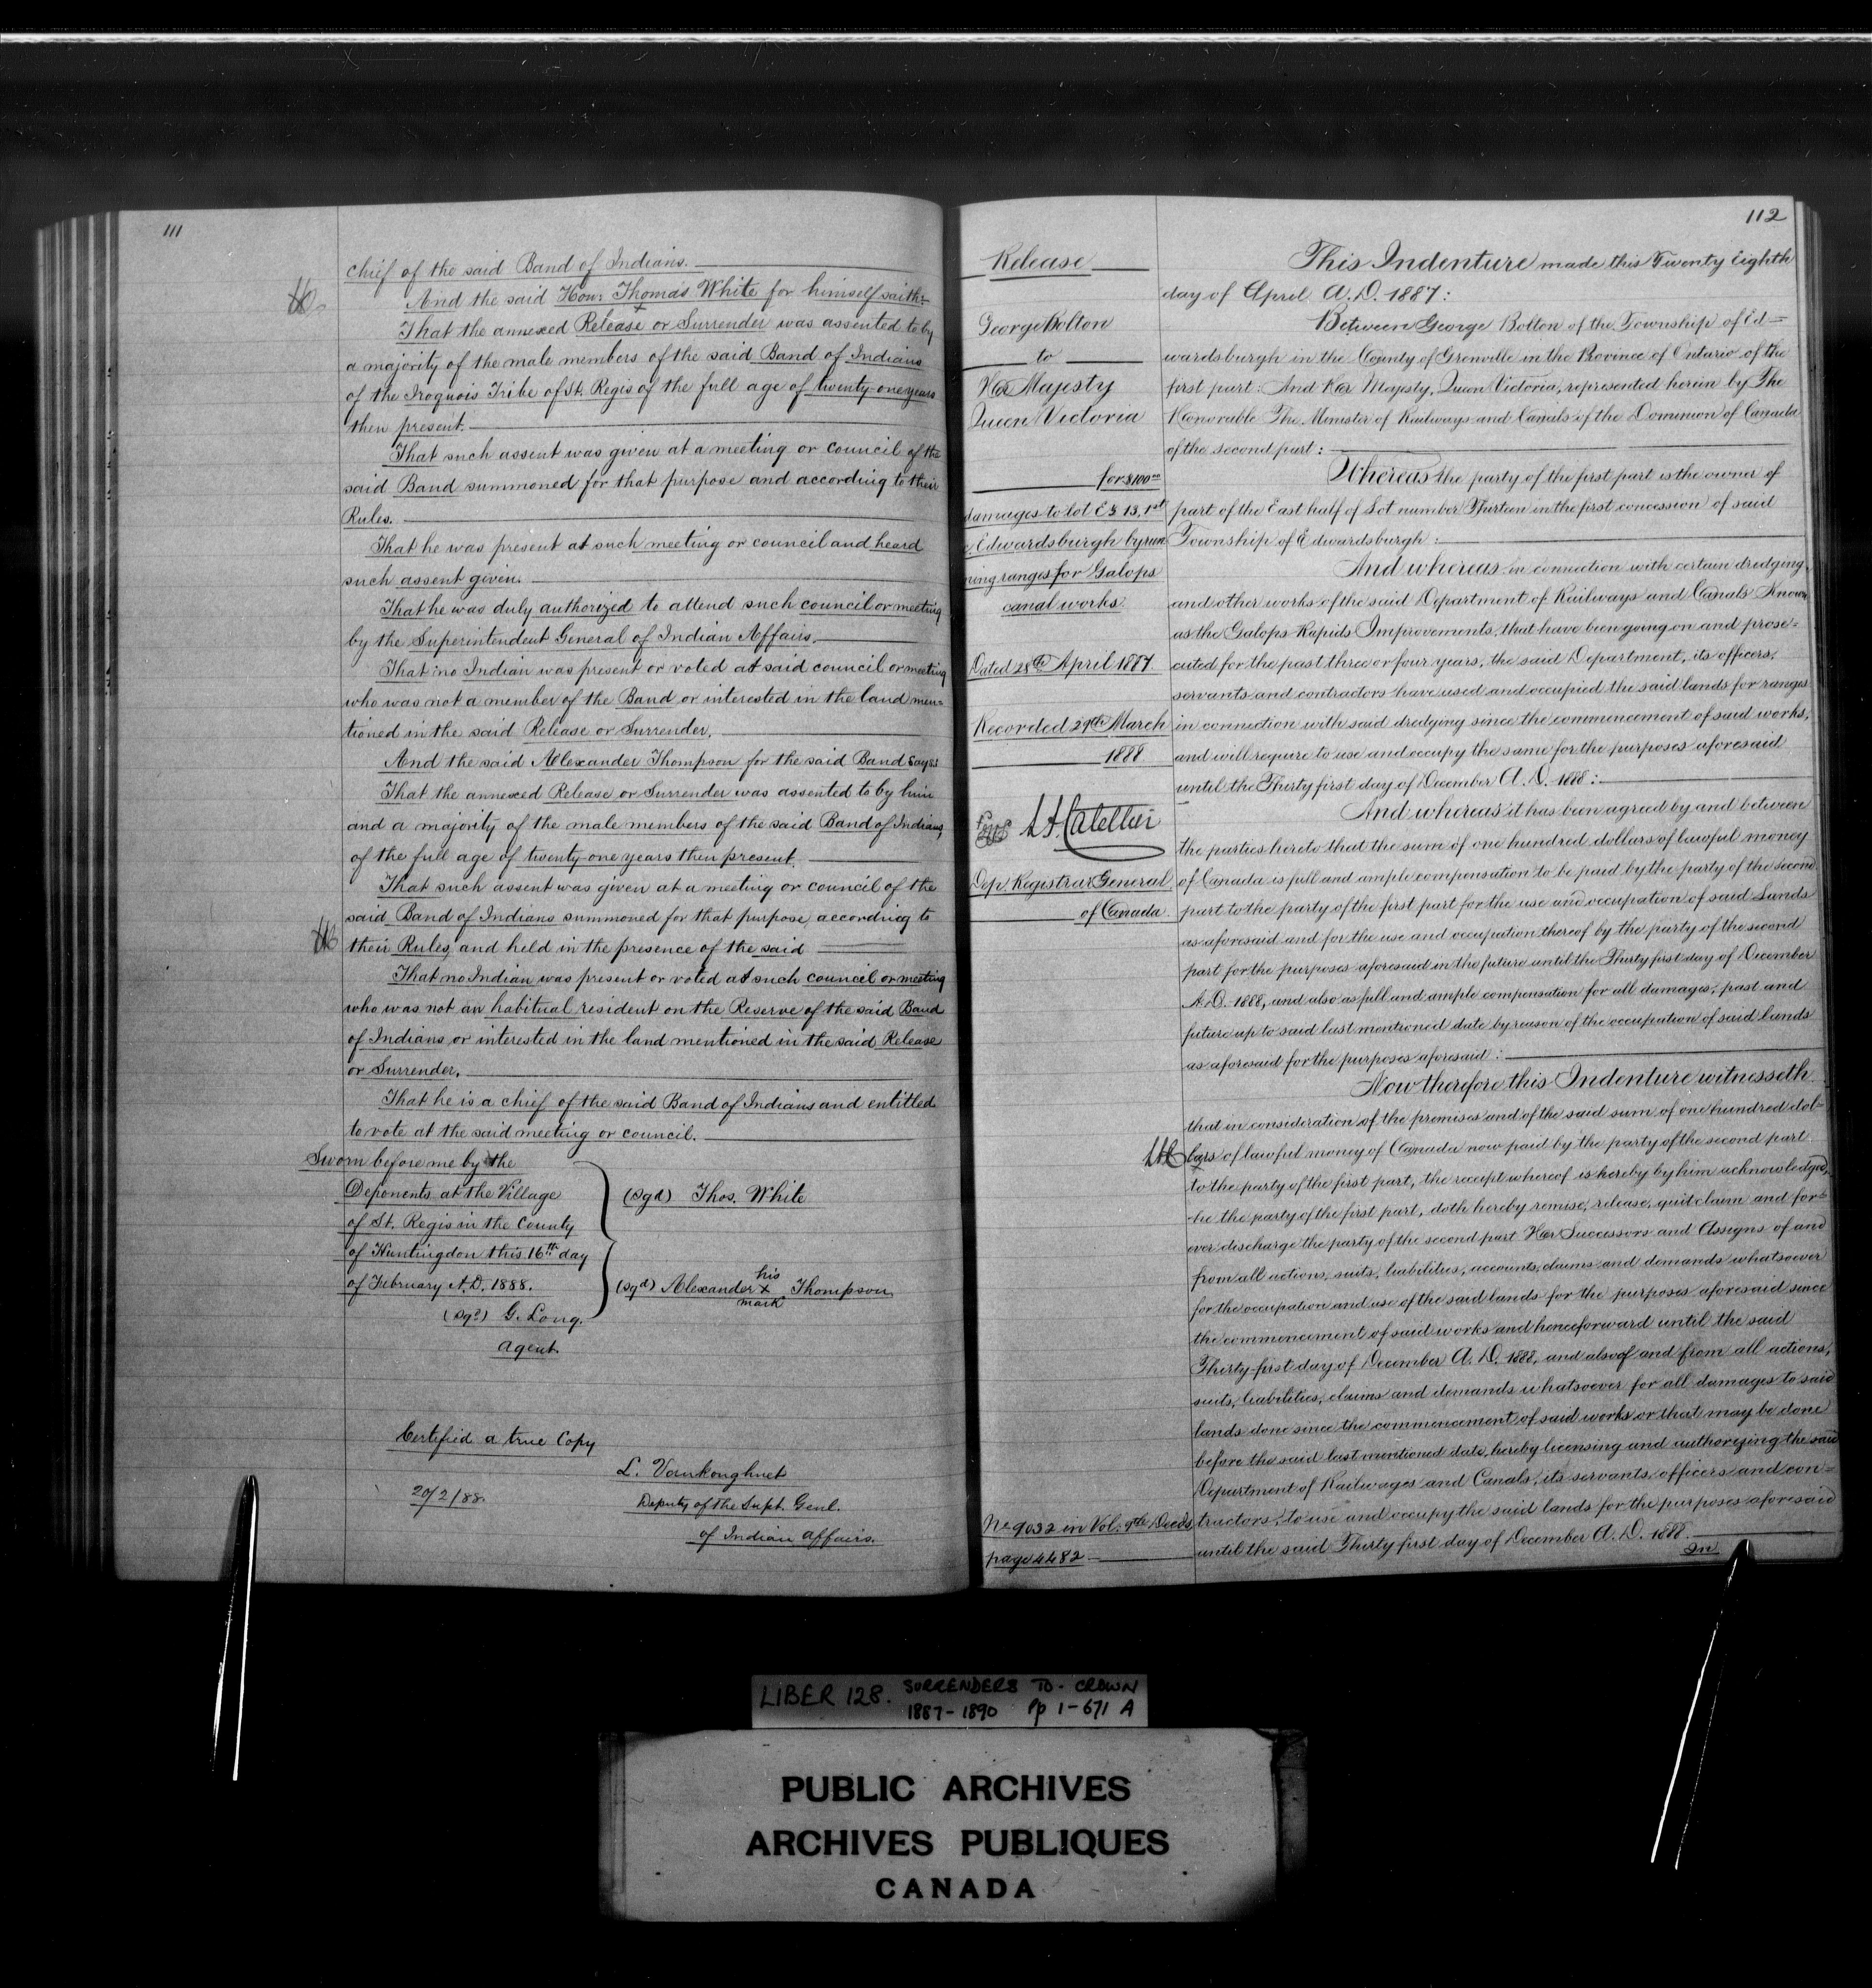 111
chief of the said Band of Indians.
And the said Hon: Thomas White for himself saith:
That the annexed Release or Surrender was assented to by
a majority of the male members of the said Band of Indians
of the Iroquois Tribe of St. Regis of the full age of twenty-one years
then present.
That such assent was given at a meeting or council of the
said Band summoned for that purpose and according to their
Rules.
That he was present at such meeting or council and heard
such assent given.
That he was duly authorized to attend such council or meeting
by the Superintendent General of Indian Affairs.
That no Indian was present or voted at said council or meeting
who was not a member of the Band or interested in the land men=
tioned in the said Release or Surrender.
And the said Alexander Thompson for the said Band says:
That the annexed Release or Surrender was assented to by him
and a majority of the male members of the said Band of Indians
of the full age of twenty-one years then present.
That such assent was given at a meeting or council of the
said Band of Indians summoned for that purpose according to
their Rules, and held in the presence of the said
That no Indian was present or voted at such council or meeting
who was not an habitual resident on the Reserve of the said Band
of Indians or interested in the land mentioned in the said Release
or Surrender.
That he is a chief of the said Band of Indians and entitled
to vote at the said meeting or council.
Sworn before me by the
Deponents at the Village
of St. Regis in the County
of Huntingdon this 16th day
of February A.D. 1888.
(sgd) G. Long.
Agent.
(sgd) Thos. White
(sgd) Alexander his x mark Thompson
Certified a true Copy
L. Vankoughnet
Deputy of the Supt. Genl.
of Indian Affairs.
20/2/88.
112
Release
George Bolton
to
Her Majesty
Queen Victoria
for $100.00
damages to lot E½ 13, 1st
c. Edwardsburgh by run
ning ranges for Galops
canal works.
Dated 28th April 1887.
Recorded 29th March
1888
L A Catellier
Dep. Registrar General
of Canada.
No 9032 in Vol. 9th Deeds
page 4482
This Indenture made this Twenty Eighth
day of April A.D. 1887:
Between George Bolton of the Township of Ed=
wardsburgh in the County of Grenville in the Province of Ontario of the
first part: And Her Majesty, Queen Victoria, represented herein by The
Honorable The Minister of Railways and Canals of the Dominion of Canada
of the second part:
Whereas the party of the first part is the owner of
part of the East half of Lot number Thirteen in the first concession of said
Township of Edwardsburgh:
And whereas in connection with certain dredging,
and other works of the said Department of Railways and Canals Known
as the Galops Rapids Improvements, that have been going on and prose=
cuted for the past three or four years, the said Department, its officers,
servants and contractors have used and occupied the said lands for ranges
in connection with said dredging since the commencement of said works,
and will require to use and occupy the same for the purposes aforesaid
until the Thirty first day of December A.D. 1888:
And whereas it has been agreed by and between
the parties hereto that the sum of one hundred dollars of lawful money
of Canada is full and ample compensation to be paid by the party of the second
part to the party of the first part for the use and occupation of said Lands
as aforesaid and for the use and occupation thereof by the party of the second
part for the purposes aforesaid in the future until the Thirty first day of December
A.D. 1888, and also as full and ample compensation for all damages, past and
future up to said last mentioned date by reason of the occupation of said Lands
as aforesaid for the purposes aforesaid:
Now therefore this Indenture witnesseth
that in consideration of the premises and of the said sum of one hundred dol=
lars of lawful money of Canada now paid by the party of the second part
to the party of the first part, the receipt whereof is hereby by him acknowledged,
he the party of the first part, doth hereby remise, release, quit claim and for=
ever discharge the party of the second part Her Successors and Assigns of and
from all actions, suits, liabilities, accounts, claims and demands whatsoever
for the occupation and use of the said lands for the purposes aforesaid since
the commencement of said works and henceforward until the said
Thirty-first day of December A.D. 1888, and also of and from all actions,
suits, liabilities, claims and demands whatsoever for all damages to said
lands done since the commencement of said works or that may be done
before the said last mentioned date, hereby licensing and authorizing the said
Department of Railways and Canals, its servants, officers and con=
tractors, to use and occupy the said lands for the purposes aforesaid
until the said Thirty first day of December A.D. 1888.
In
LIBER 128. SURRENDERS TO CROWN
1887-1890 Pp 1-671 A
PUBLIC ARCHIVES
ARCHIVES PUBLIQUES
CANADA